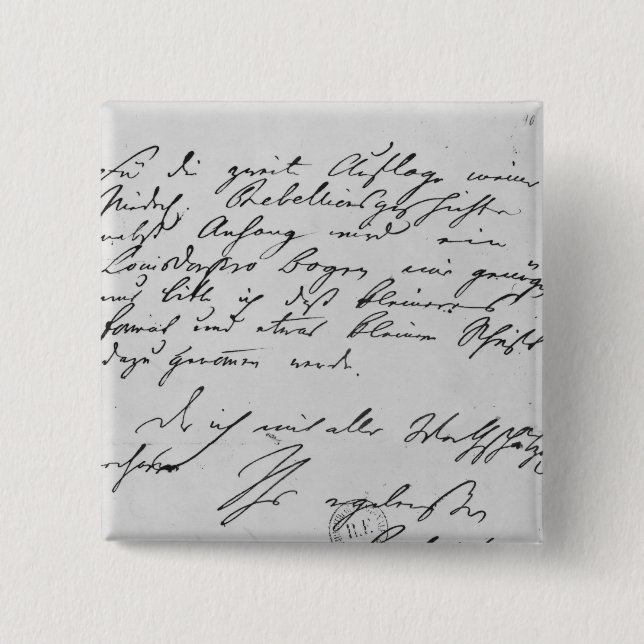 40
Für die zweite Auflage meiner
Niederl. Rebellionsgeschichte
nebst Anhang wird ein
Louisdor pro Bogen mir genüg
nur bitte ich daß kleineres
Format und etwas kleinere Schrift
dazu genommen werde.
Der ich mit aller Werthschätzu
Ihr ergebenster
R.F.